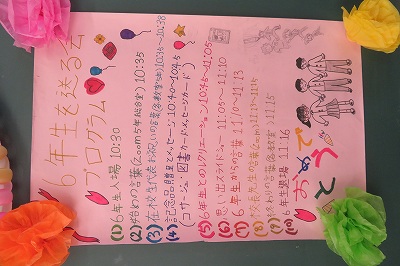 6年生を送る会
プログラム
(1) 6年生入場 10:30
(2) 始めの言葉(Zoom5年総合室) 10:35
(3) 在校生代表お祝いの言葉
(4) 記念品贈呈とメッセージ 10:40~10:45
(コサージュ 図書カード メッセージカード)
(5) 6年生とのレクリエーション 10:45~11:05
(6) 思い出スライドショー 11:05~11:10
(7) 6年生からの言葉 11:10~11:13
(8) 校長先生の言葉(Zoom) 11:13~11:15
(9) 終わりの言葉 11:15
(10) 6年生退場 11:16
おめでとう